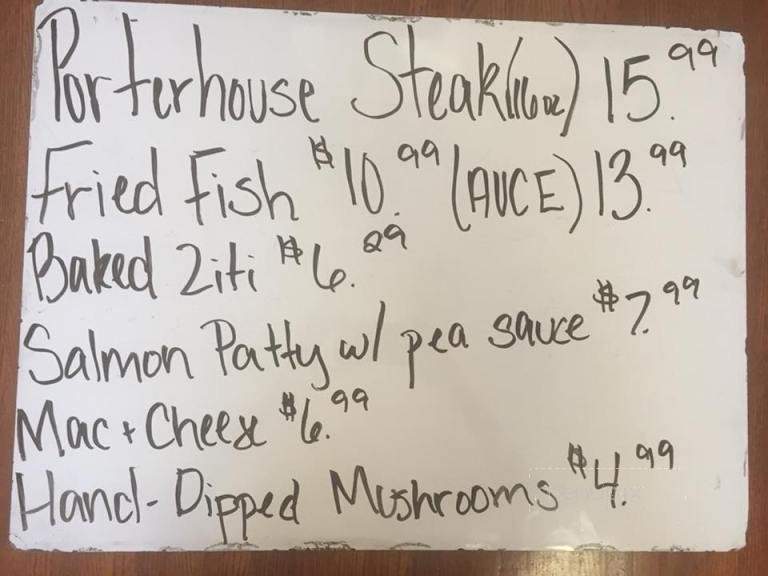 Porterhouse Steak (16oz) 15.99
Fried Fish $10.99 (AUCE) 13.99
Baked Ziti $6.29
Salmon Patty w/ pea sauce $7.99
Mac + Cheese $6.99
Hand-Dipped Mushrooms $4.99